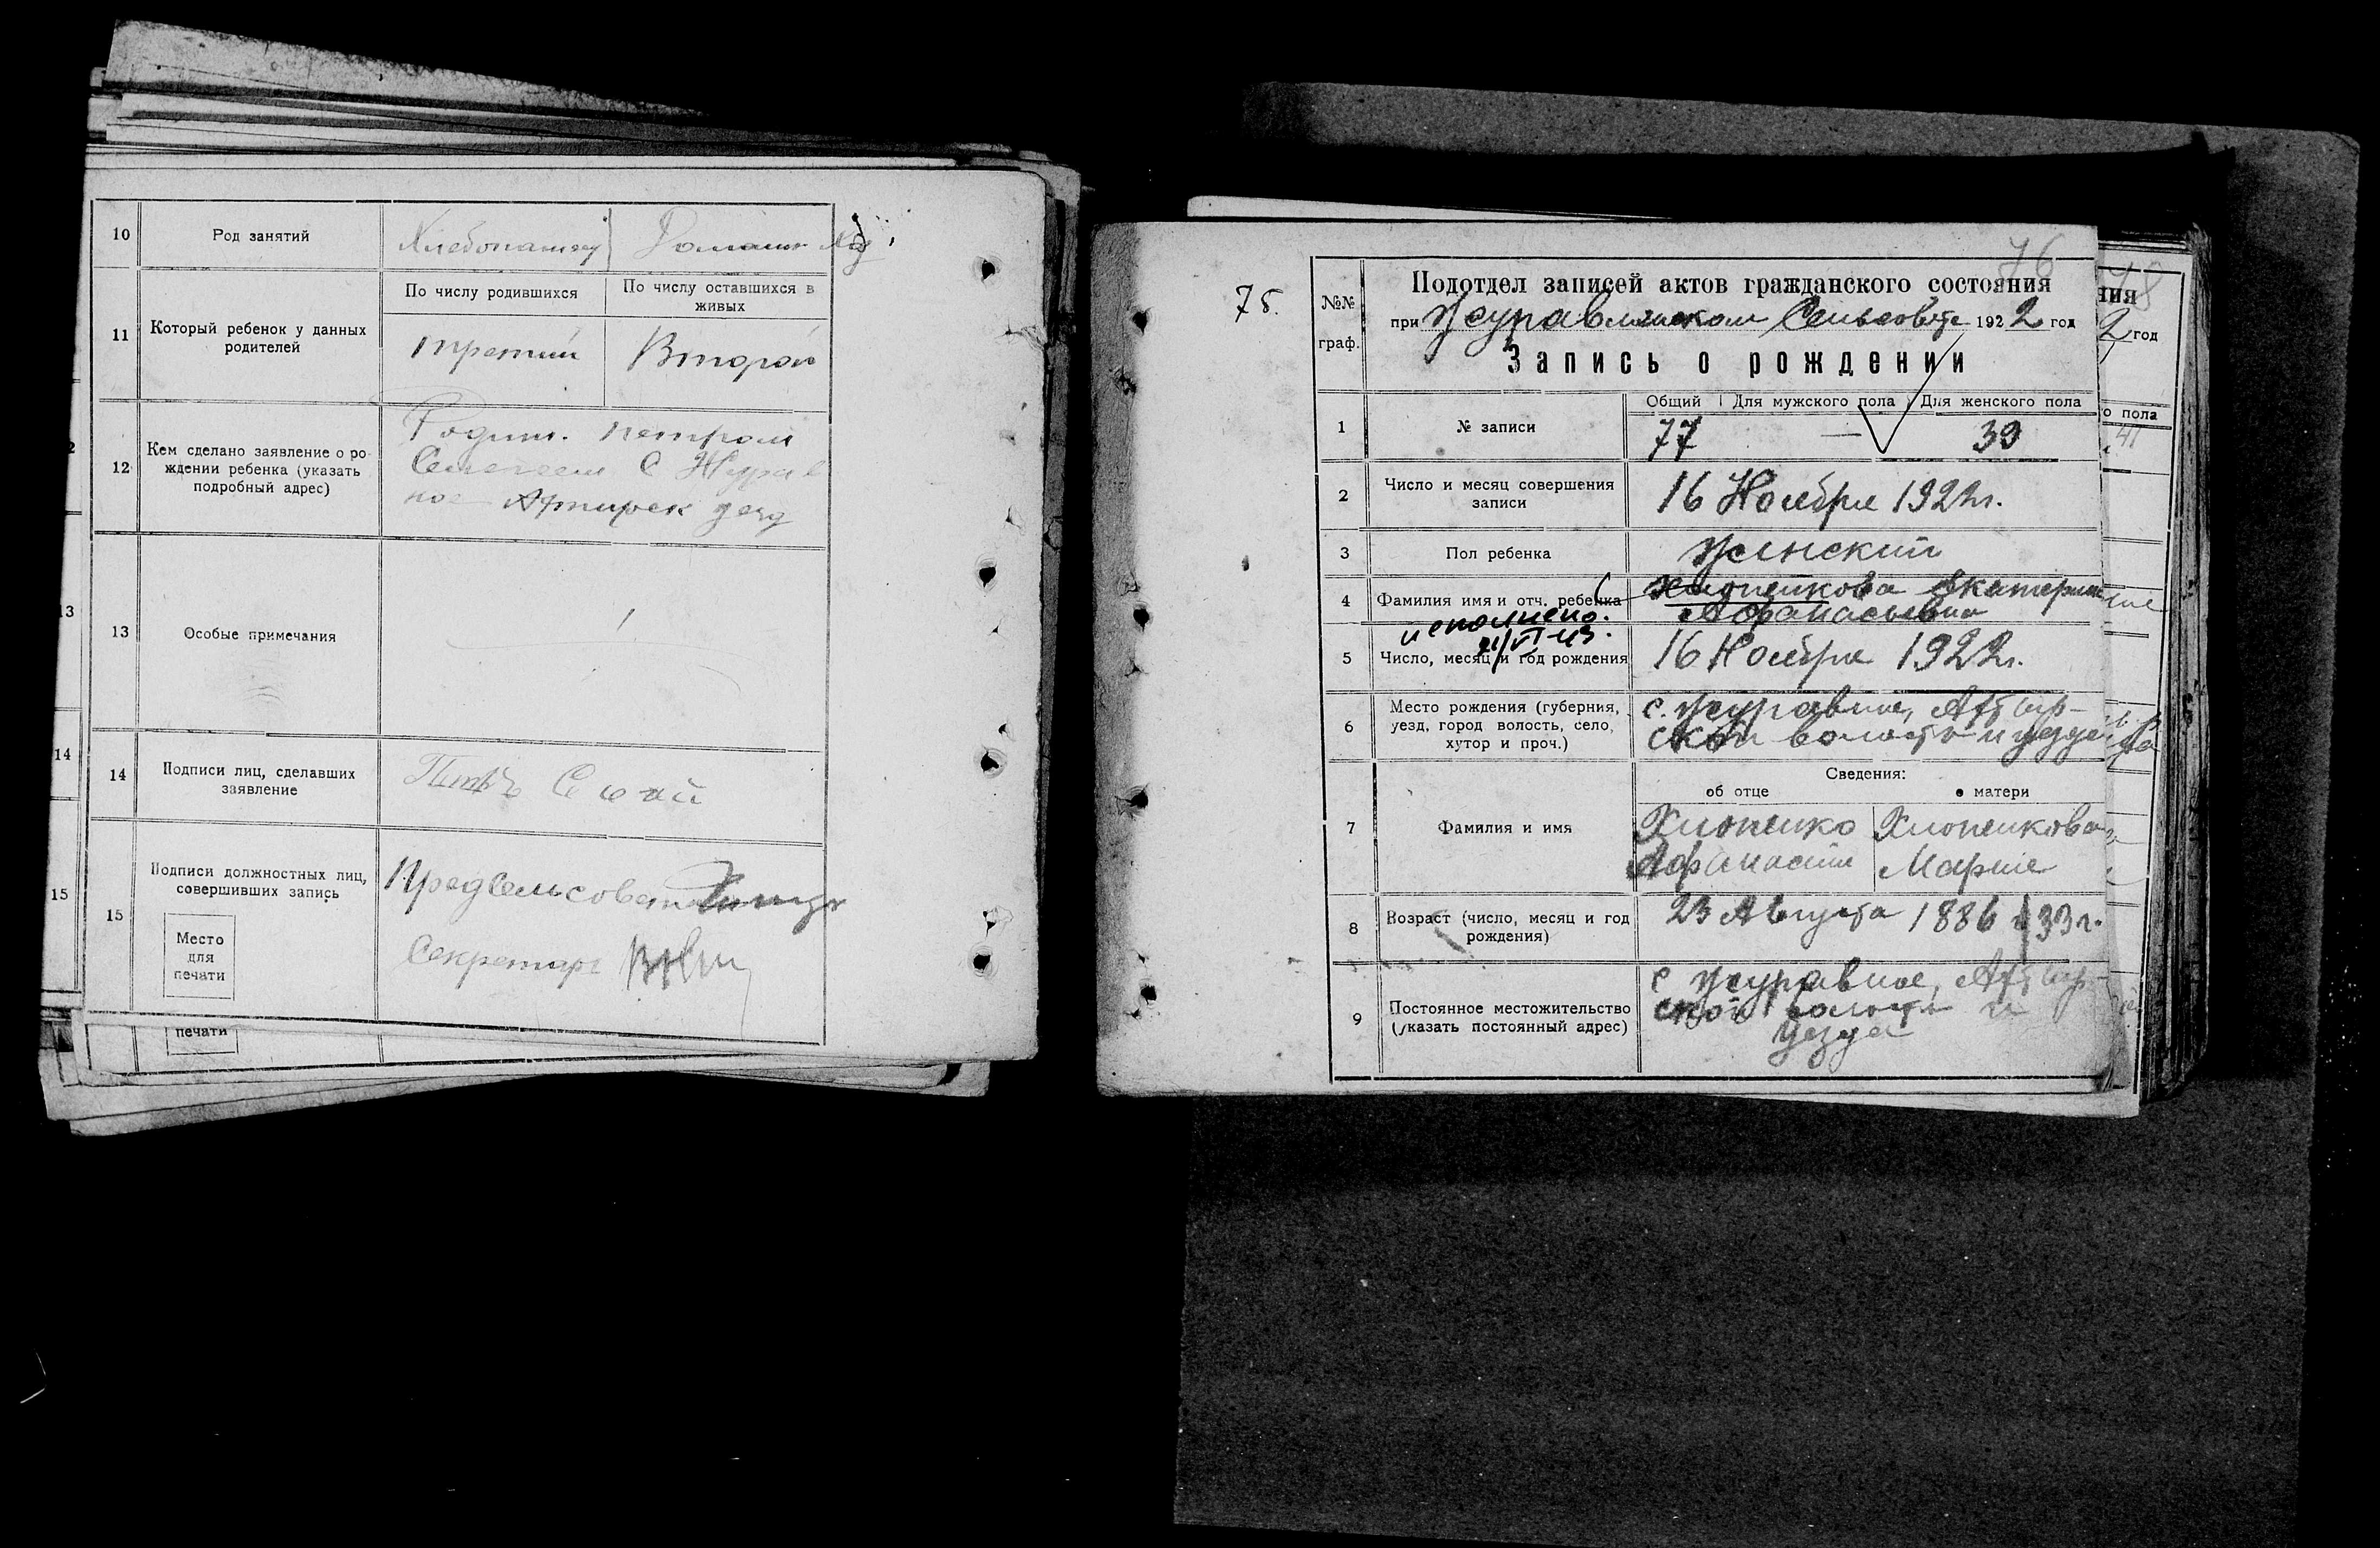 10
Род занятий
Хлебопашец
Домашн
11
Который ребенок у данных
родителей
По числу родившихся
По числу оставшихся в
живых
третий
Второй
12
Кем сделано заявление о ро-
ждении ребенка (указать
подробный адрес)
Родит. Петром
С Журав
ное Ахтырск уезд
13
Особые примечания
14
Подписи лиц, сделавших
заявление
15
Подписи должностных лиц,
совершивших запись
Место
для
печати
Предсельсовета
Секретарь
печати
13
14
15
75.
76
№№
граф.
Подотдел записей актов гражданского состояния
при Журавлинском Сельсовете 1922 год
Запись о рождении
1
№ записи
Общий
Для мужского пола
Для женского пола
77
—
39
2
Число и месяц совершения
записи
16 Ноября 1922г.
3
Пол ребенка
Женский
4
Фамилия имя и отч. ребенка
Хлопенкова Екатерина
Афанасьевна
исполнено.
5
Число, месяц и год рождения
16 Ноября 1922г.
6
Место рождения (губерния,
уезд, город волость, село,
хутор и проч.)
с. Журавное, Ахтыр-
ской волости и уезда
7
Фамилия и имя
Сведения:
об отце
о матери
Хлопенко
Афанасий
Хлопенкова
Мария
8
Возраст (число, месяц и год
рождения)
23 Августа 1886
33 г.
9
Постоянное местожительство
(указать постоянный адрес)
с Журавное, Ахтыр-
ской волости и
уезда
ния
2 год
о пола
41